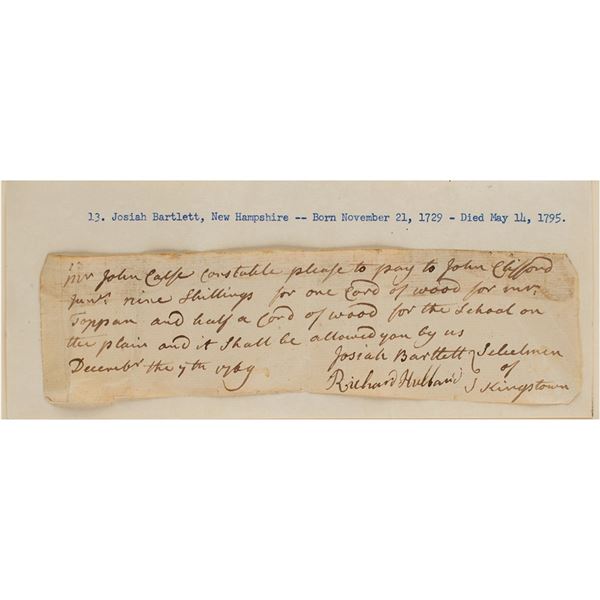 13. Josiah Bartlett, New Hampshire -- Born November 21, 1729 - Died May 14, 1795.
Mr John Calfe Constable please to pay to John Clifford
Junr. nine Shillings for one Cord of wood for mr.
Toppan and half a Cord of wood for the School on
the plain and it Shall be allowed you by us
Josiah Bartlett } Selectmen
Decembr. the 7th 1769
Richard Hubbard } of Kingstown